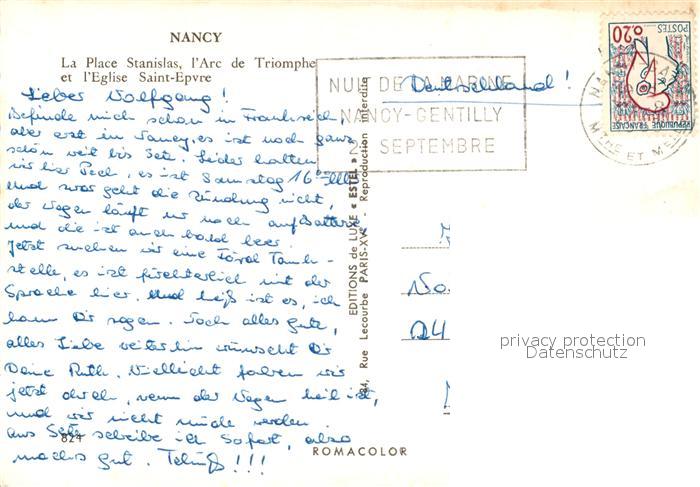 NANCY
La Place Stanislas, l'Arc de Triomphe
et l'Eglise Saint-Epvre
Lieber Wolfgang!
Befinde mich schon in Frankreich,
aber erst in Nancy, es ist noch ganz
schön weit bis Sete. Leider hatten
wir hier Pech, es ist Samstag 16°° Uhr
und zwar geht die Zündung nicht,
der Wagen läuft nur noch auf Batterie
und die ist auch bald leer.
Jetzt suchen wir eine Ford Tank-
stelle, es ist fürchterlich mit der
Sprache hier. Und heiß ist es, ich
kann Dir sagen. Doch alles gute,
alles Liebe weiterhin wünscht Dir
Deine Ruth. Vielleicht fahren wir
jetzt durch, wenn der Wagen heil ist,
und wir nicht müde werden.
aus Sete schreibe ich sofort, also
machs gut. Tschüß!!!
824
ROMACOLOR
EDITIONS de LUXE « ESTEL »
84, Rue Lecourbe PARIS-XVe - Reproduction interdite
NUIT DE LA MARINE
NANCY-GENTILLY
2 SEPTEMBRE
Deutschland!
No
04
0,20
POSTES
REPUBLIQUE FRANÇAISE
privacy protection
Datenschutz